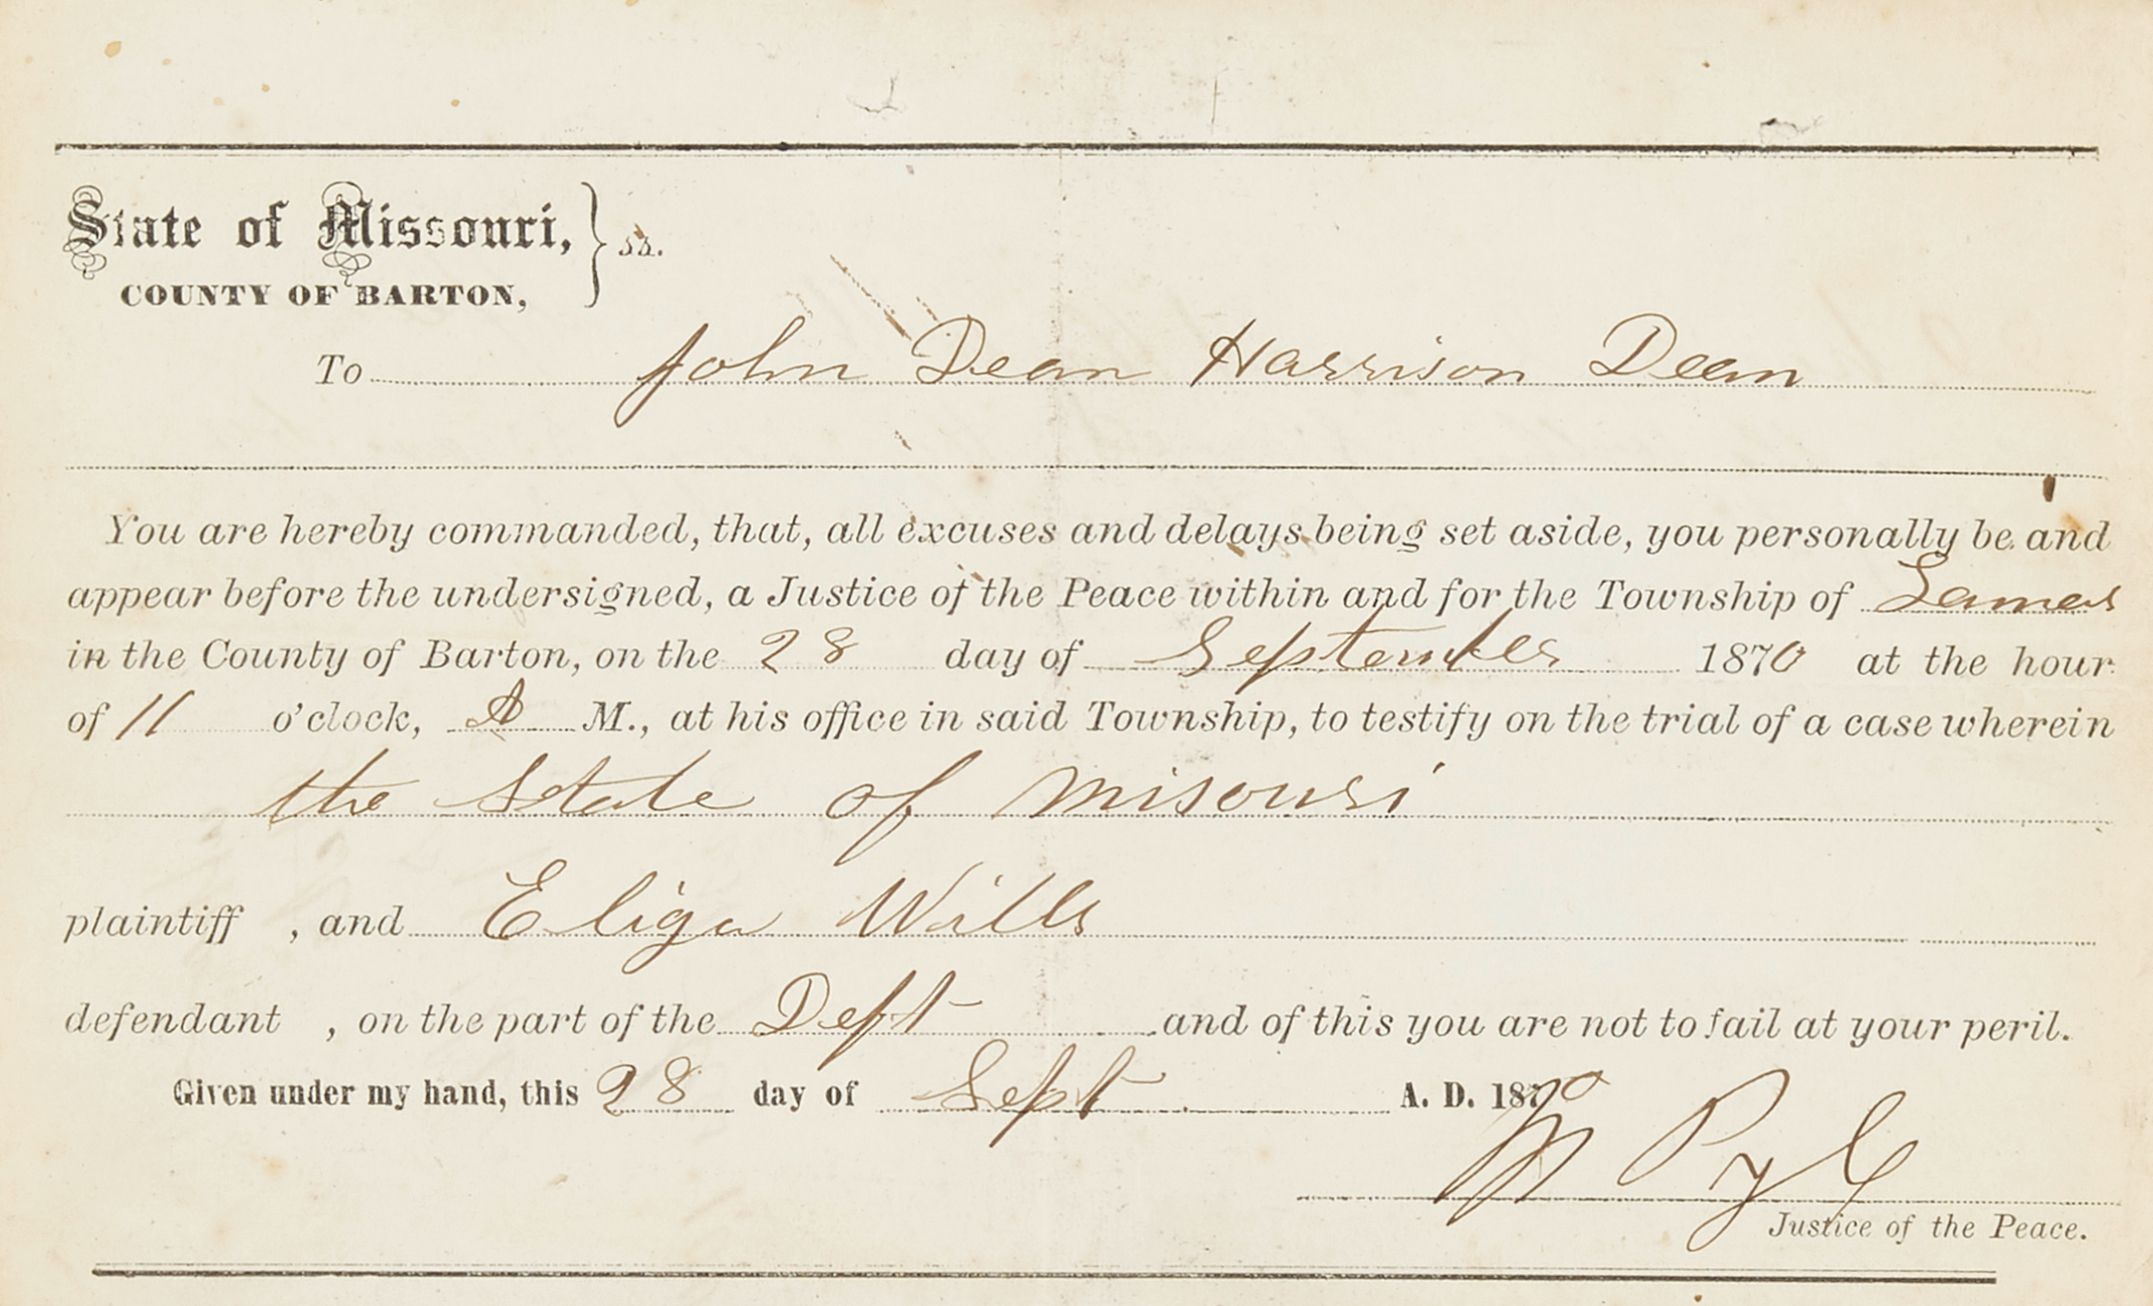 State of Missouri, } ss.
COUNTY OF BARTON,
To John Dean Harrison Dean
You are hereby commanded, that, all excuses and delays being set aside, you personally be and
appear before the undersigned, a Justice of the Peace within and for the Township of Lamar
in the County of Barton, on the 28 day of September 1870 at the hour
of 11 o'clock, A M., at his office in said Township, to testify on the trial of a case wherein
the State of Misouri
plaintiff , and Eliga Wills
defendant , on the part of the Deft and of this you are not to fail at your peril.
Given under my hand, this 28 day of Sept A. D. 1870
Pyle
Justice of the Peace.